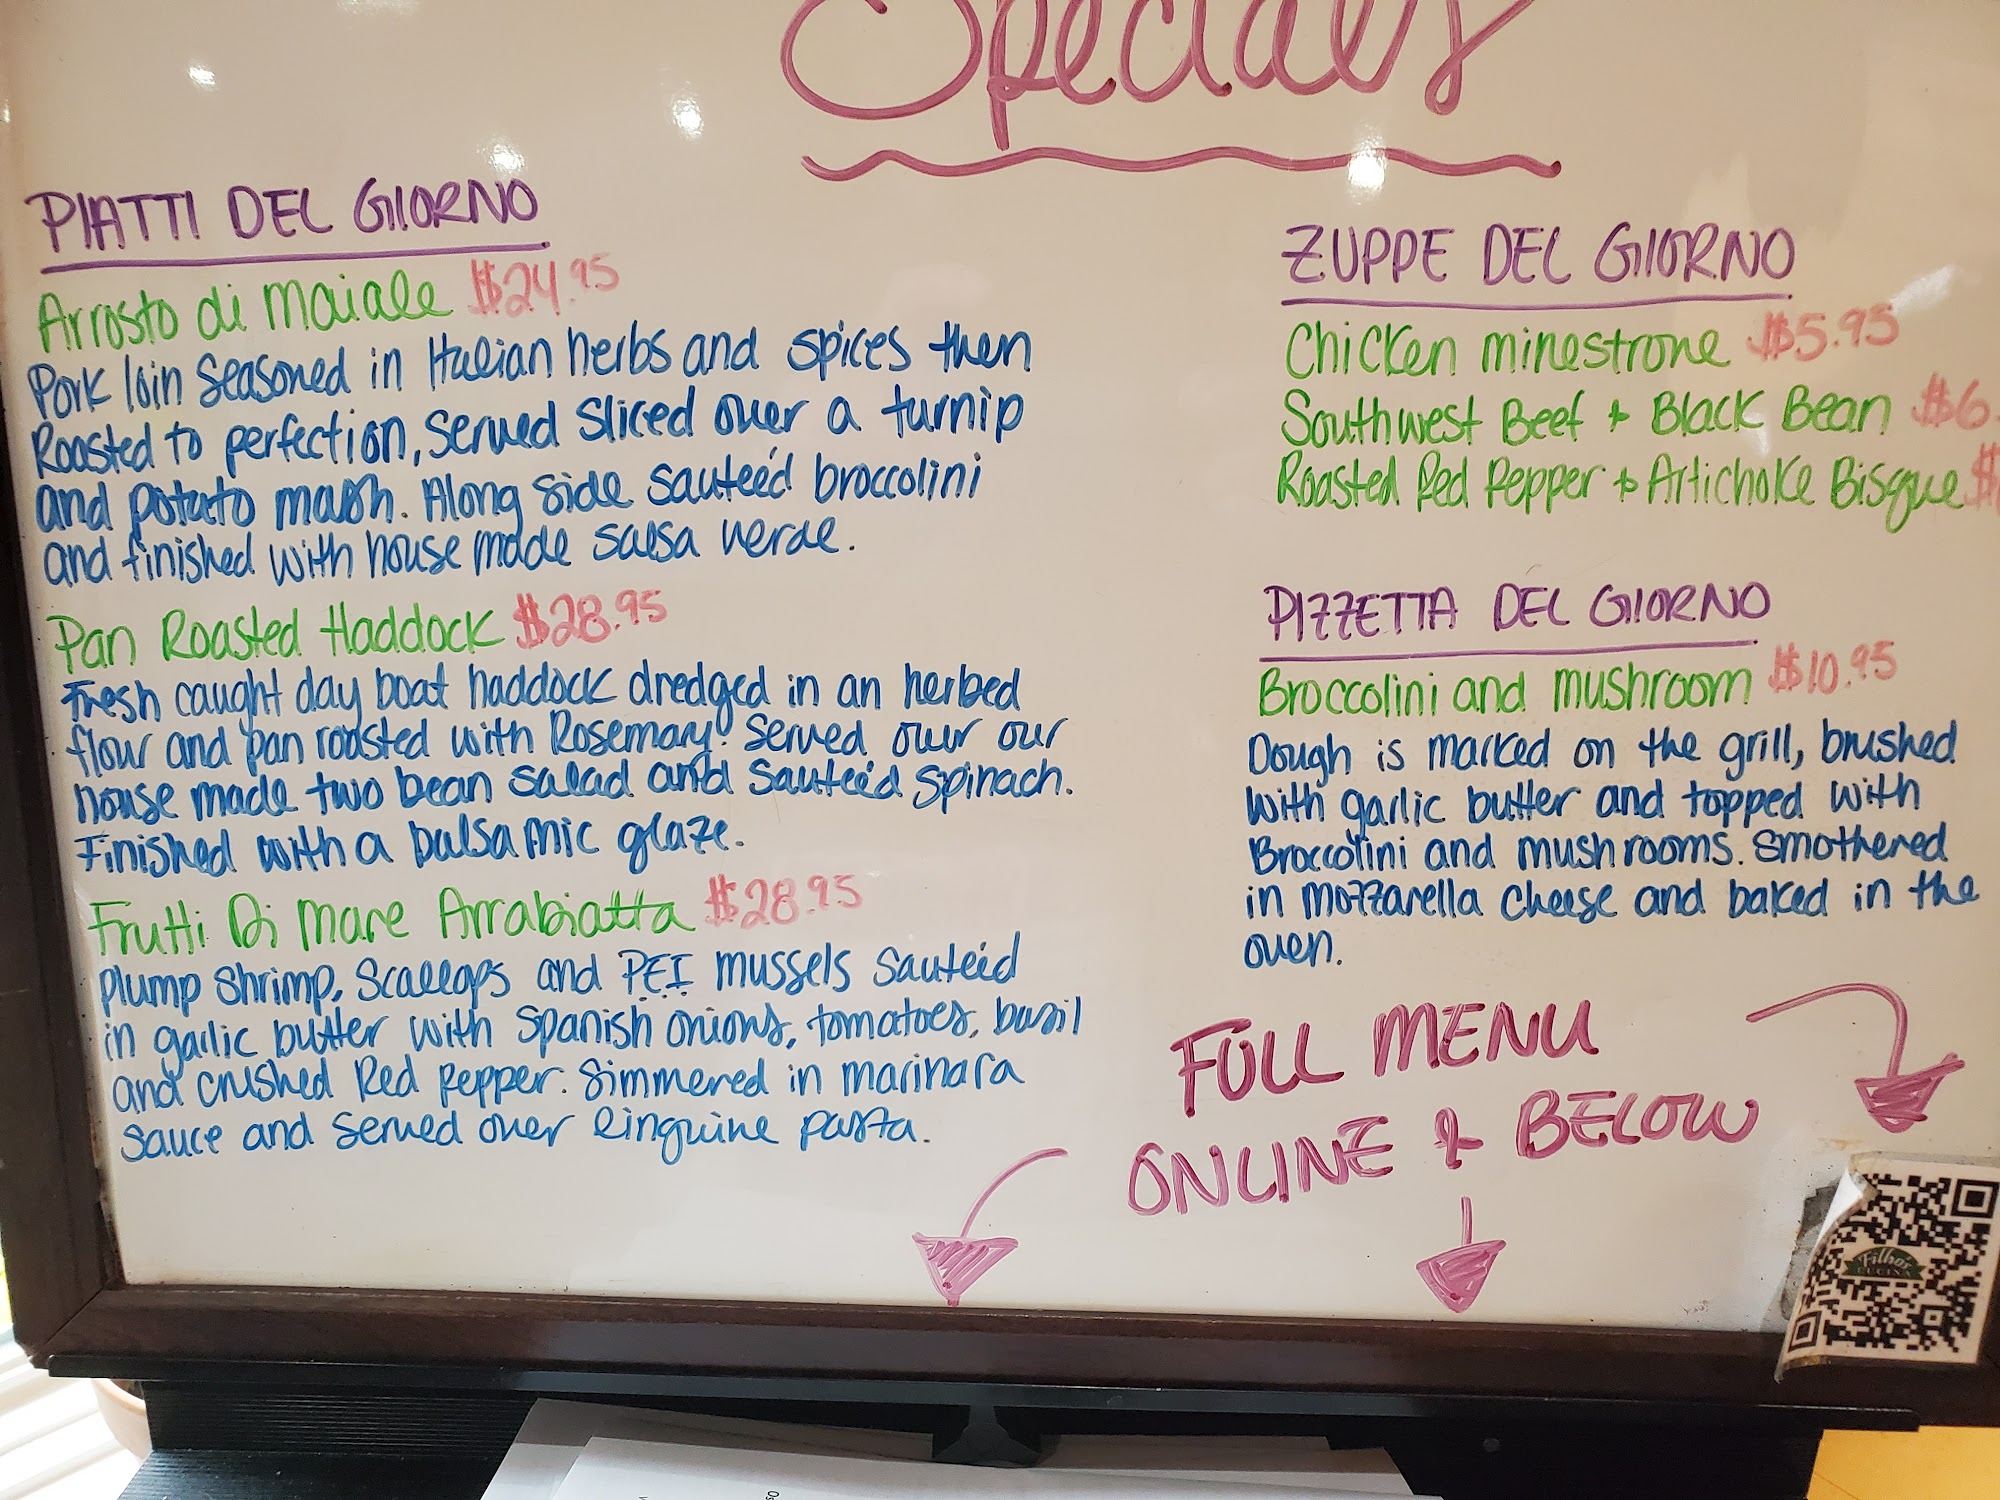 Specials
PIATTI DEL GIORNO
Arrosto di Maiale $24.95
Pork loin seasoned in Italian herbs and spices then
Roasted to perfection, served sliced over a turnip
and potato mash. Along side sauteé'd broccolini
and finished with house made salsa verde.
Pan Roasted Haddock $28.95
Fresh caught day boat haddock dredged in an herbed
flour and pan roasted with Rosemary. Served over our
house made two bean salad and sauteé'd spinach.
Finished with a balsamic glaze.
Frutti Di Mare Arrabiatta $28.95
Plump shrimp, scallops and PEI mussels sauteé'd
in garlic butter with spanish onions, tomatoes, basil
and crushed Red pepper. Simmered in marinara
sauce and served over linguine pasta.
ZUPPE DEL GIORNO
Chicken minestrone $5.95
Southwest Beef & Black Bean $6.
Roasted Red Pepper & Artichoke Bisque $
PIZZETTA DEL GIORNO
Broccolini and mushroom $10.95
Dough is marked on the grill, brushed
with garlic butter and topped with
Broccolini and mushrooms. Smothered
in mozzarella cheese and baked in the
oven.
FULL MENU
ONLINE & BELOW